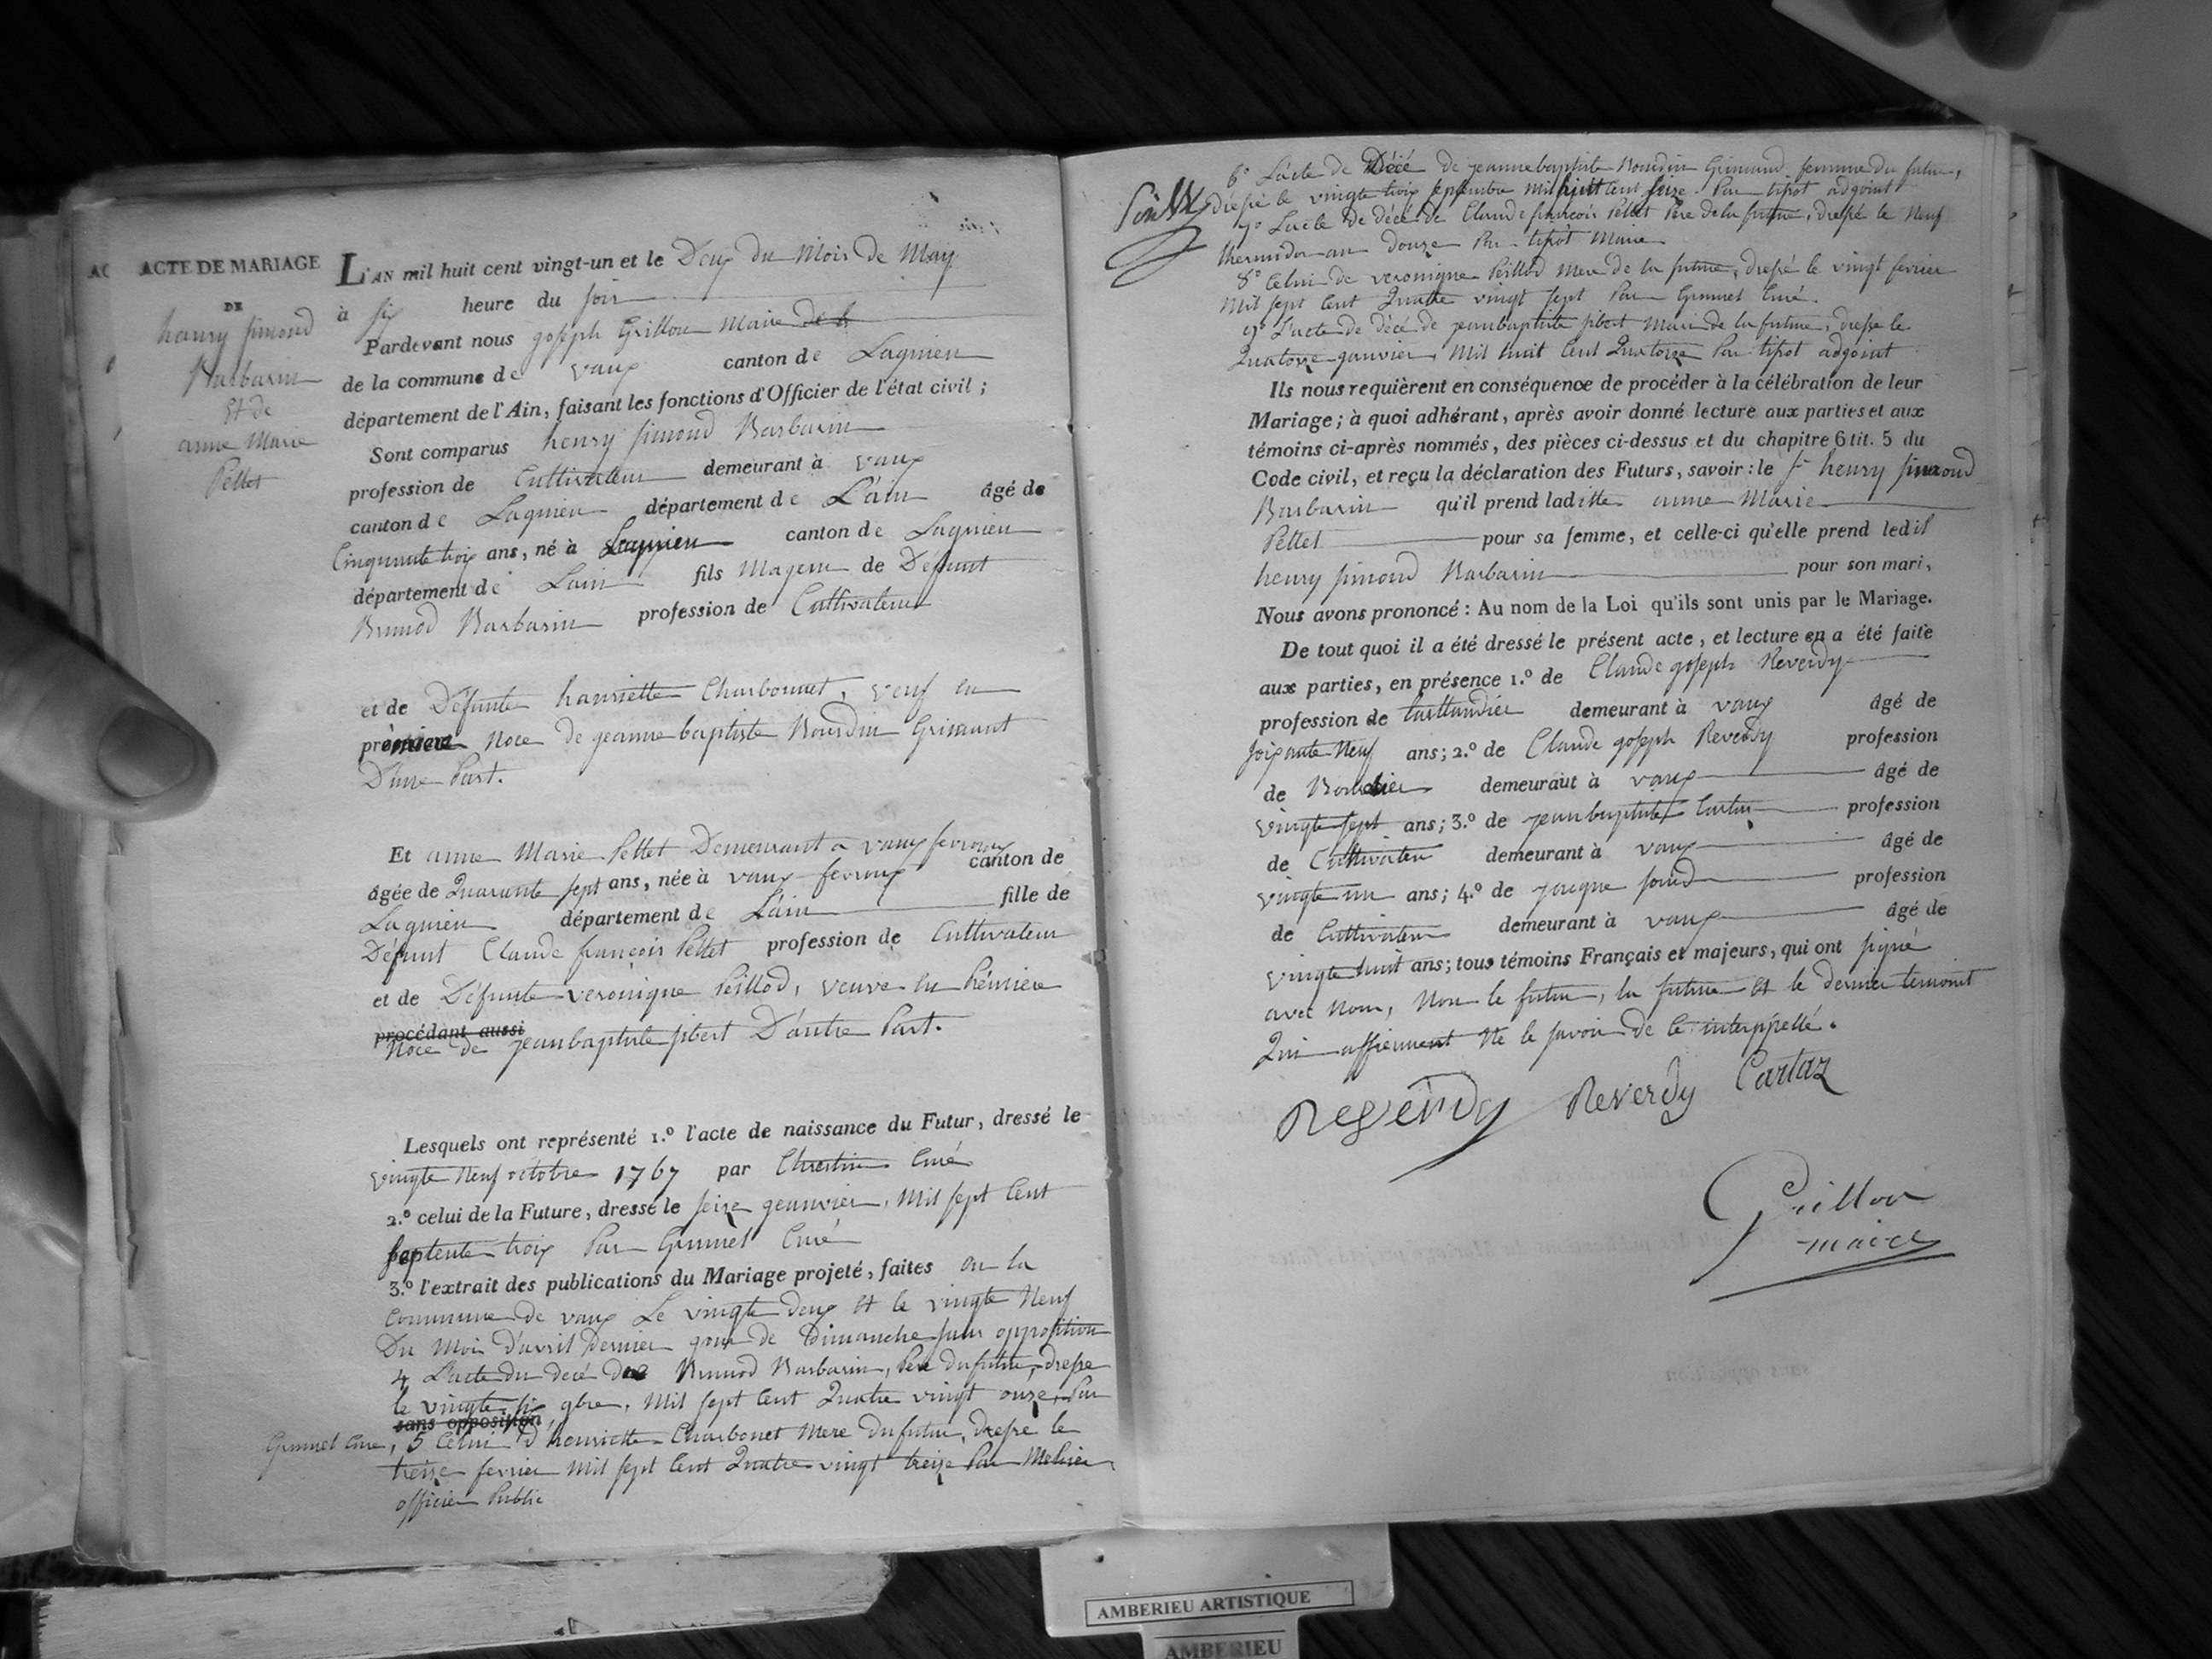 ACTE DE MARIAGE
DE
henry simond
Barbarin
Et de
anne Marie
Pellet
L'AN mil huit cent vingt-un et le Deux du Mois de May
à six heure du soir
Pardevant nous goseph Grillon Maire de la
de la commune de vaux canton de Lagnieu
département de l'Ain, faisant les fonctions d'Officier de l'état civil ;
Sont comparus henry simond Barbarin
profession de Cultivateur demeurant à vaux
canton de Lagnieu département de L'ain âgé de
Cinquante trois ans, né à Lagnieu canton de Lagnieu
département de Lain fils Mageur de Défunt
Barbarin profession de Cultivateur
et de Défunte hanriette Charbonnet, veuf en
première Noce de geanne baptiste Bourdin Grimant
D'une Part.
Et anne Marie Pellet Demeurant a vaux fevroux
âgée de Quarante sept ans, née à vaux fevroux canton de
Lagnieu département de L'ain fille de
Défunt Claude françois Pellet profession de Cultivateur
et de Défunte veronique Peillod, veuve en Prémière
procédant aussi
Noce de jean baptiste sibert D'autre Part.
Lesquels ont représenté 1.º l'acte de naissance du Futur, dressé le
vingte Neuf octobre 1767 par Curé
2.º celui de la Future, dressé le seize geanvier, Mil sept Cent
septente trois Par Grumel Curé
3.º l'extrait des publications du Mariage projeté, faites en la
Commune de vaux Le vingte deux et le vingte Neuf
Du Mois d'avril Dernier gour de Dimanche sans opposition
4 L'acte du decé de Barbarin, Père du futur, dressé
le vingte six 9bre, Mil sept Cent Quatre vingt onze, Par
sans opposition
Grumel Curé, 5 Celui d henriette Charbonet Mere du futur, dressé le
treize fevrier Mil sept Cent Quatre vingt treize Par
officier Public
6º L'acte de Décé de jeanne baptiste Bourdin Grimand femme du futur,
dressé le vingte trois septembre Mil huit Cent seize Par tipot adgoint
7º L'acte de décé de Claude françois Pellet Père de la future, dressé le Neuf
thermidor an douze Par tipot Maire
8º Celui de veronique Peillod Mere de la future, dressé le vingt fevrier
Mil sept Cent Quatre vingt sept Par Grumel Curé.
9º L'acte de décé de jean baptiste sibert Mari de la future, dressé le
Quatorze ganvier, Mil huit Cent Quatorze Par tipot adgoint
Ils nous requièrent en conséquence de procéder à la célébration de leur
Mariage ; à quoi adhérant, après avoir donné lecture aux parties et aux
témoins ci-après nommés, des pièces ci-dessus et du chapitre 6 tit. 5 du
Code civil, et reçu la déclaration des Futurs, savoir : le sr henry simond
Barbarin qu'il prend laditte anne Marie
Pellet pour sa femme, et celle-ci qu'elle prend ledit
henry simond Barbarin pour son mari,
Nous avons prononcé : Au nom de la Loi qu'ils sont unis par le Mariage.
De tout quoi il a été dressé le présent acte, et lecture en a été faite
aux parties, en présence 1.º de Claude goseph Reverdy
profession de taillandier demeurant à vaux âgé de
soixante Neuf ans ; 2.º de Claude goseph Reverdy profession
de demeurant à vaux âgé de
vingte sept ans ; 3.º de jean baptiste Cartaz profession
de Cultivateur demeurant à vaux âgé de
vingte un ans ; 4.º de jacque profession
de Cultivateur demeurant à vaux âgé de
vingte huit ans ; tous témoins Français et majeurs, qui ont signé
avec Nous, Non le futur, la future et le dernier temoint
Qui affirment Ne le savoir de ce interpellé.
Reverdy Reverdy Cartaz
Grillon
maire
AMBERIEU ARTISTIQUE
AMBERIEU